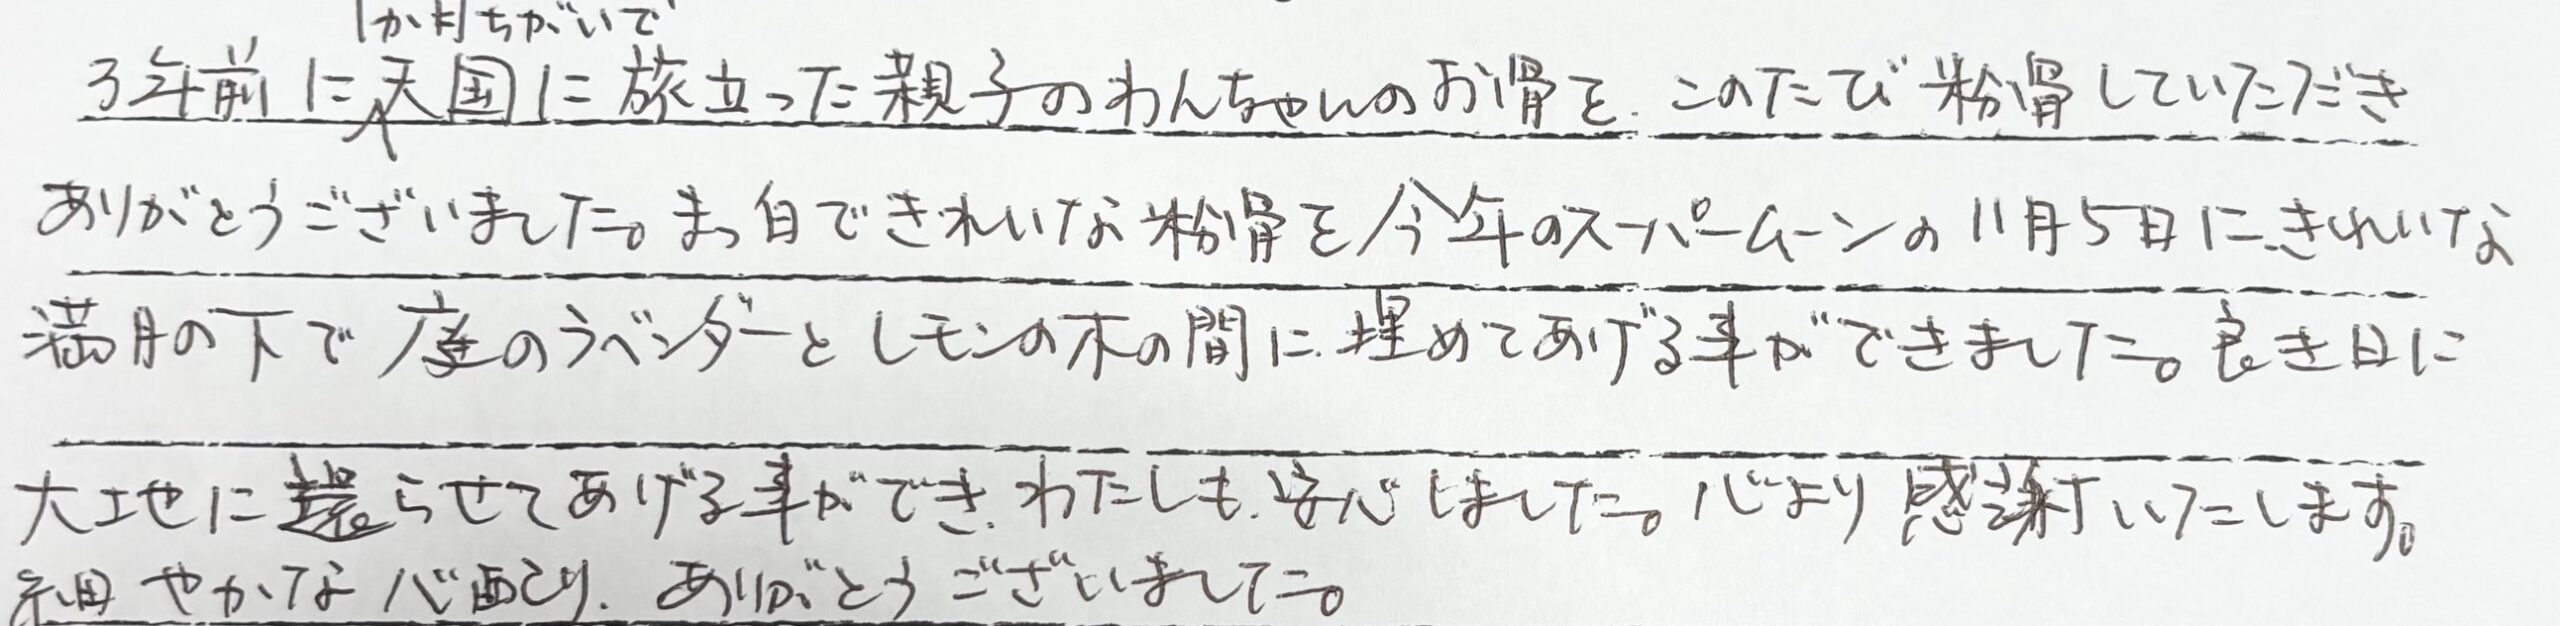 1か月ちがいで
3年前に天国に旅立った親子のわんちゃんのお骨を、このたび粉骨していただき
ありがとうございました。まっ白できれいな粉骨を今年のスーパームーンの11月5日に、きれいな
満月の下で庭のラベンダーとレモンの木の間に、埋めてあげる事ができました。良き日に
大地に還らせてあげる事ができ、わたしも、安心しました。心より感謝いたします。
細やかな心配り、ありがとうございました。